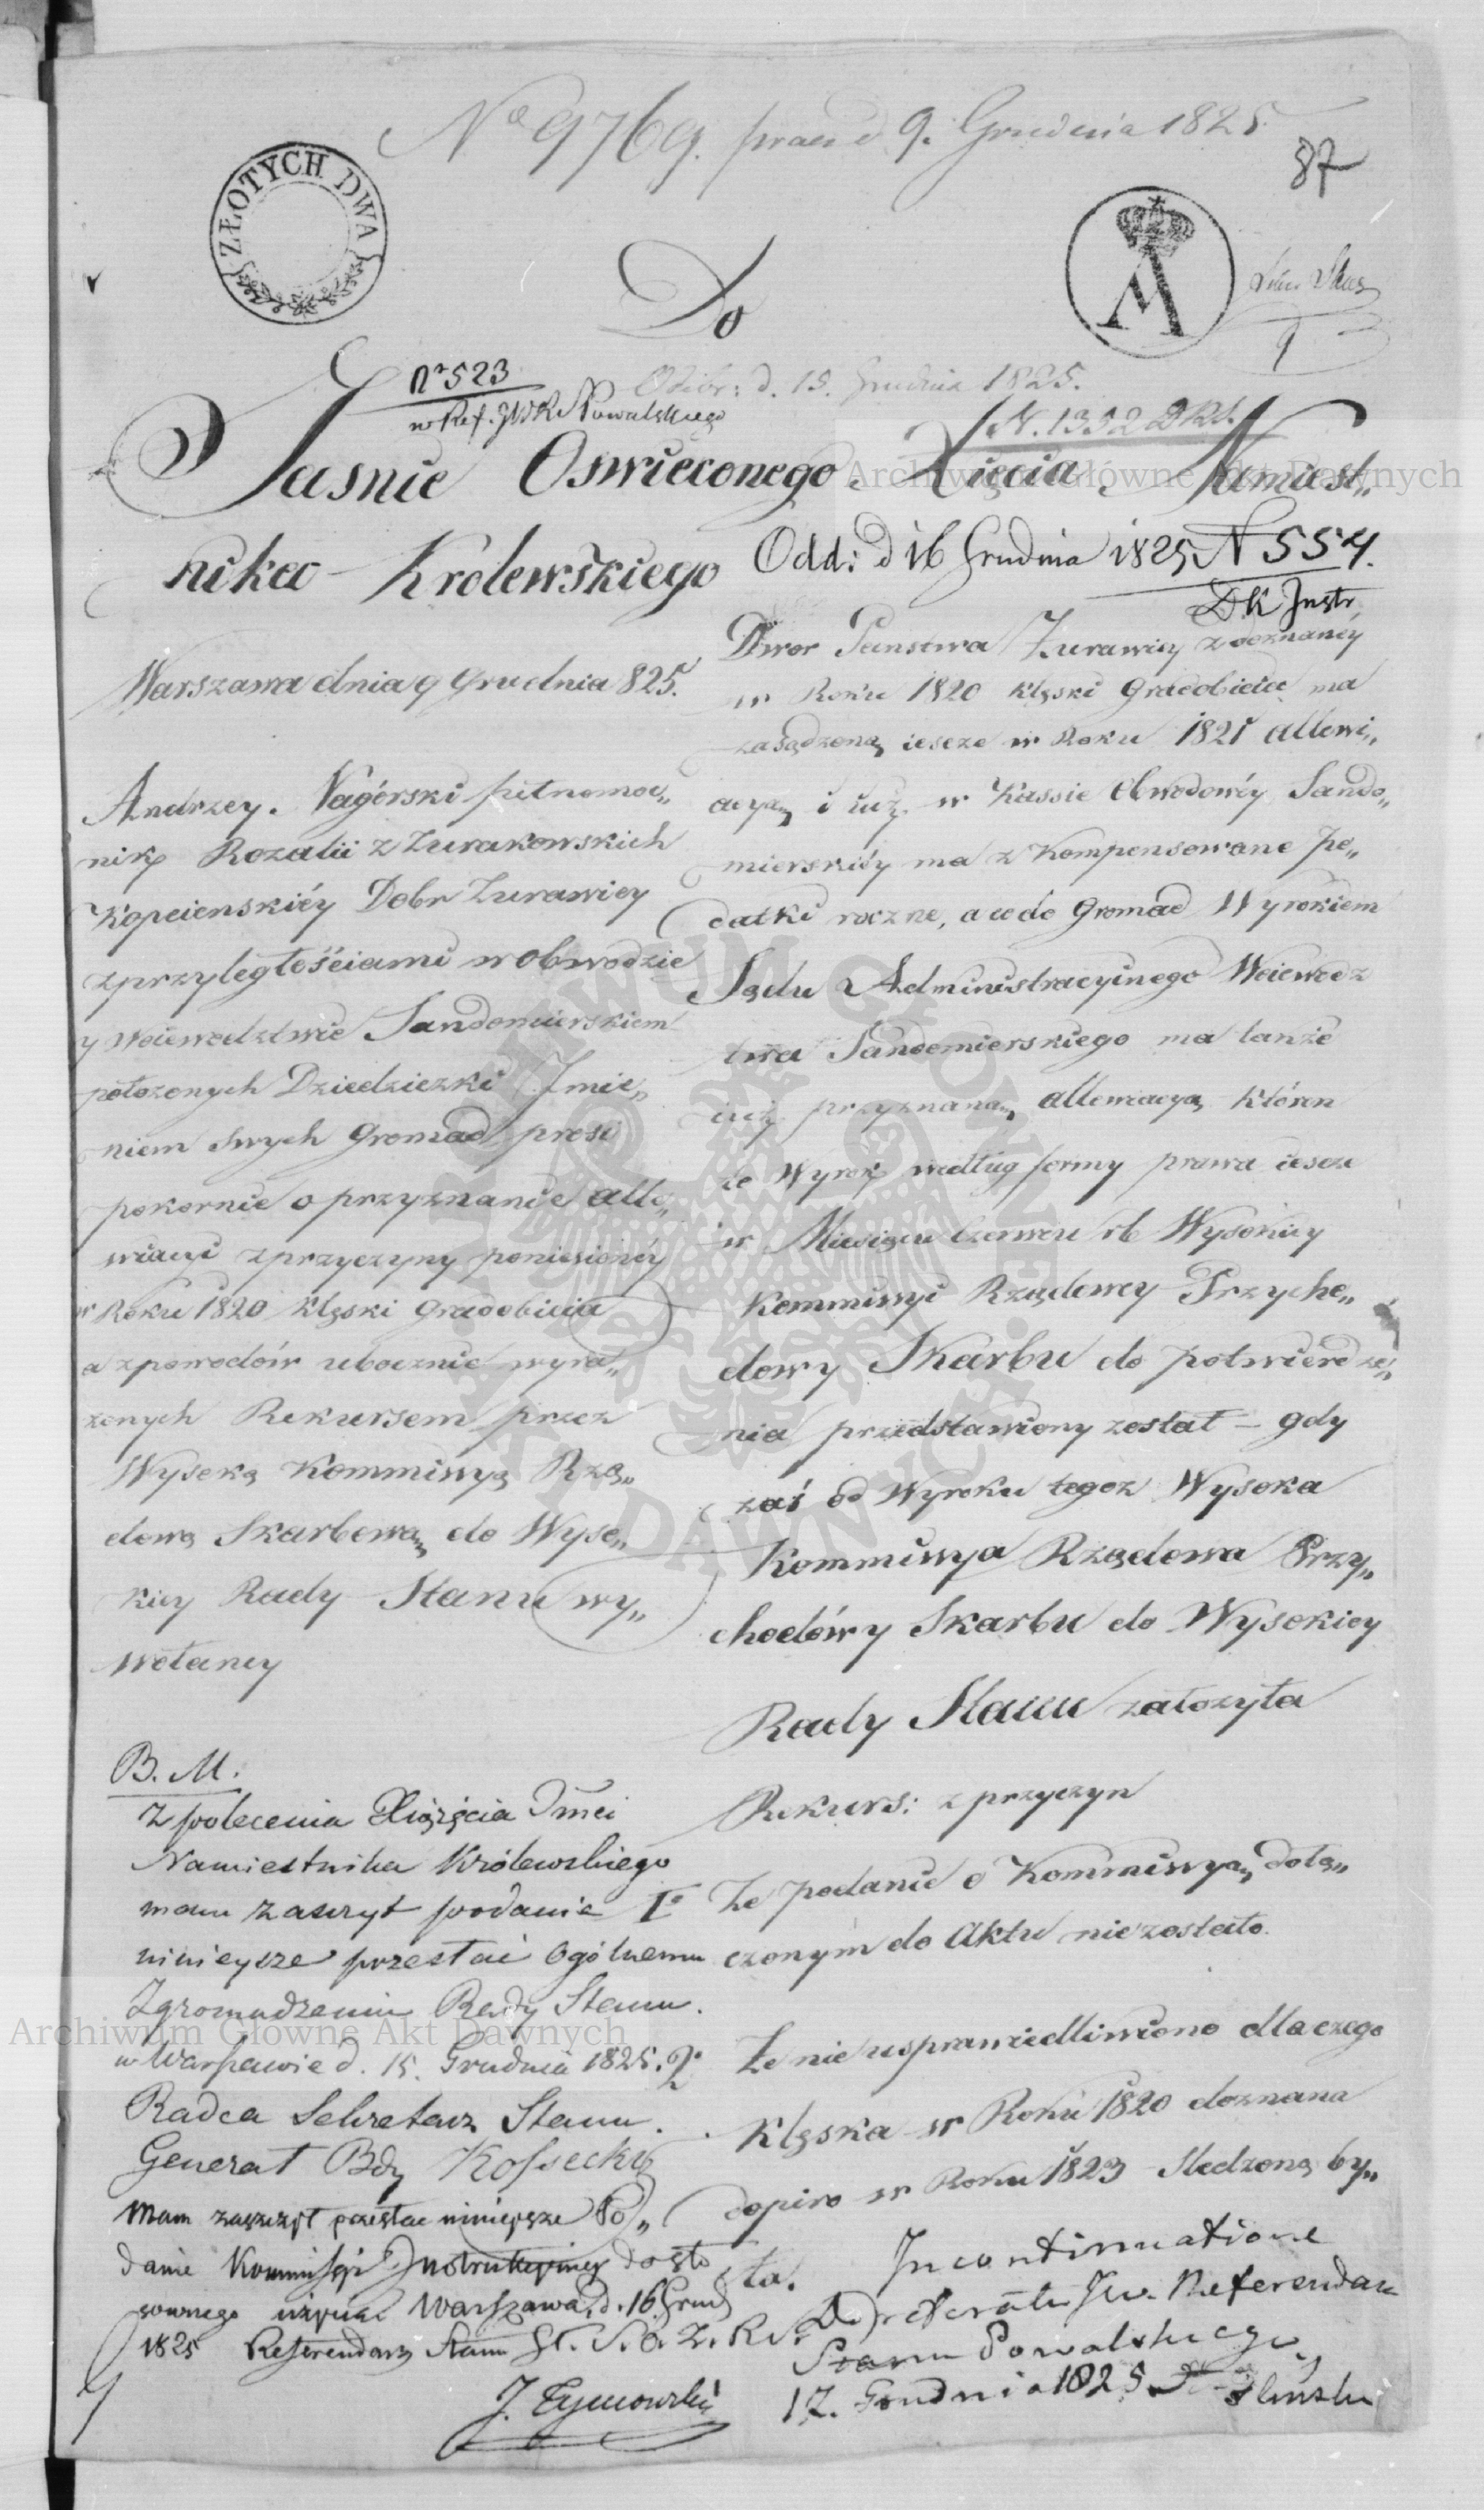 No 9769. praes d 9. Grudnia 1825
87
ZŁOTYCH DWA
M
Do
No 523
w Ref. JWR Nowalskiego
Odebr: d. 15. Grudnia 1825.
N. 1352 DRS.
Jasnie Oswieconego Xięcia Namiest„
nika Krolewskiego
Odd: d 16 Grudnia 1825 N 554.
DK Instr.
Warszawa dnia 9 Grudnia 825.
Andrzey Nagórski pełnomoc„
nik Rozalii z Zurakowskich
Kopcienskiéy Dobr Zurawicy
z przyległościami w Obwodzie
y Woiewodztwie Sandomierskiem
położonych Dziedziczki Imie„
niem swych Gromad prosi
pokornie o przyznanie alle„
wiacyi z przyczyny poniesionéy
w Roku 1820 klęski Gradobicia
a z powodów ubocznie wyra„
żonych Rekursem przez
Wysoką Kommissyą Rzą„
dową Skarbową do Wyso„
kiey Rady Stanu wy„
wołaney
Dwor Panstwa Zurawicy z doznaney
w Roku 1820 klęski Gradobicia ma
zasądzoną iescze w Roku 1821 allewi„
acyą i iuż w Kassie Obwodowéy Sando„
mierskiéy ma z kompensowane po„
datki roczne, a co do Gromad Wyrokiem
Sądu Administracyinego Woiewodz
twa Sandomierskiego ma tanże
iuż przyznaną allewiacyą, któren
to Wyrok według formy prawa iescze
w Miesiącu Czerwcu rb Wysokiey
Kommissyi Rządowey Przycho„
dowy Skarbu do potwierdze„
nia przedstawiony został – gdy
zaś od Wyroku tegoz Wysoka
Kommissya Rządowa Przy„
chodówy Skarbu do Wysokiey
Rady Stanu założyła
Rekurs: z przyczyn
1o Ze podanie o Kommissyą dołą„
czonym do Aktu niezostało.
2o Ze nie usprawiedliwiono dlaczego
klęska w Roku 1820 doznana
dopiro w Roku 1823 sledzoną by„
ła.
B. M.
Z polecenia Xiążęcia Jmci
Namiestnika Królewskiego
mam zaszczyt podanie
ninieysze przesłać Ogólnemu
Zgromadzeniu Rady Stanu.
w Warszawie d. 15. Grudnia 1825.
Radca Sekretarz Stanu.
Generał Bdy Kossecki
Mam zaszczyt przesłac ninieysze Po„
danie Kommissyi Instrukcyiney do sto
sownego użycia Warszawa, d. 16 Grud
1825 Referendarz Stanu
J. Tymowski
In continuatione
Do referatu JW. Referendarza
Stanu Powalskiego
17. Grudnia 1825
Archiwum Główne Akt Dawnych
Archiwum Główne Akt Dawnych
ARCHIWUM GŁÓWNE AKT DAWNYCH